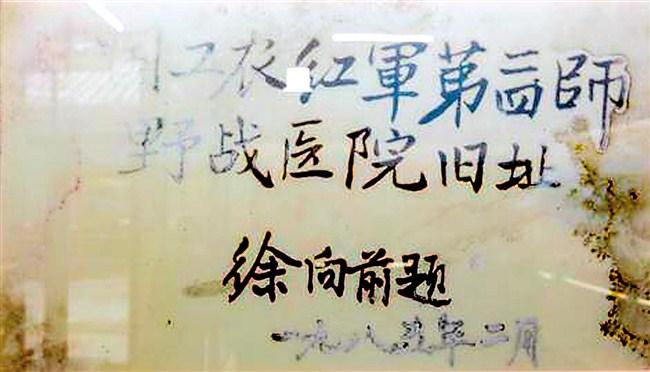 工农红軍第二四師
野战医院旧址
徐向前题
一九八五年二月